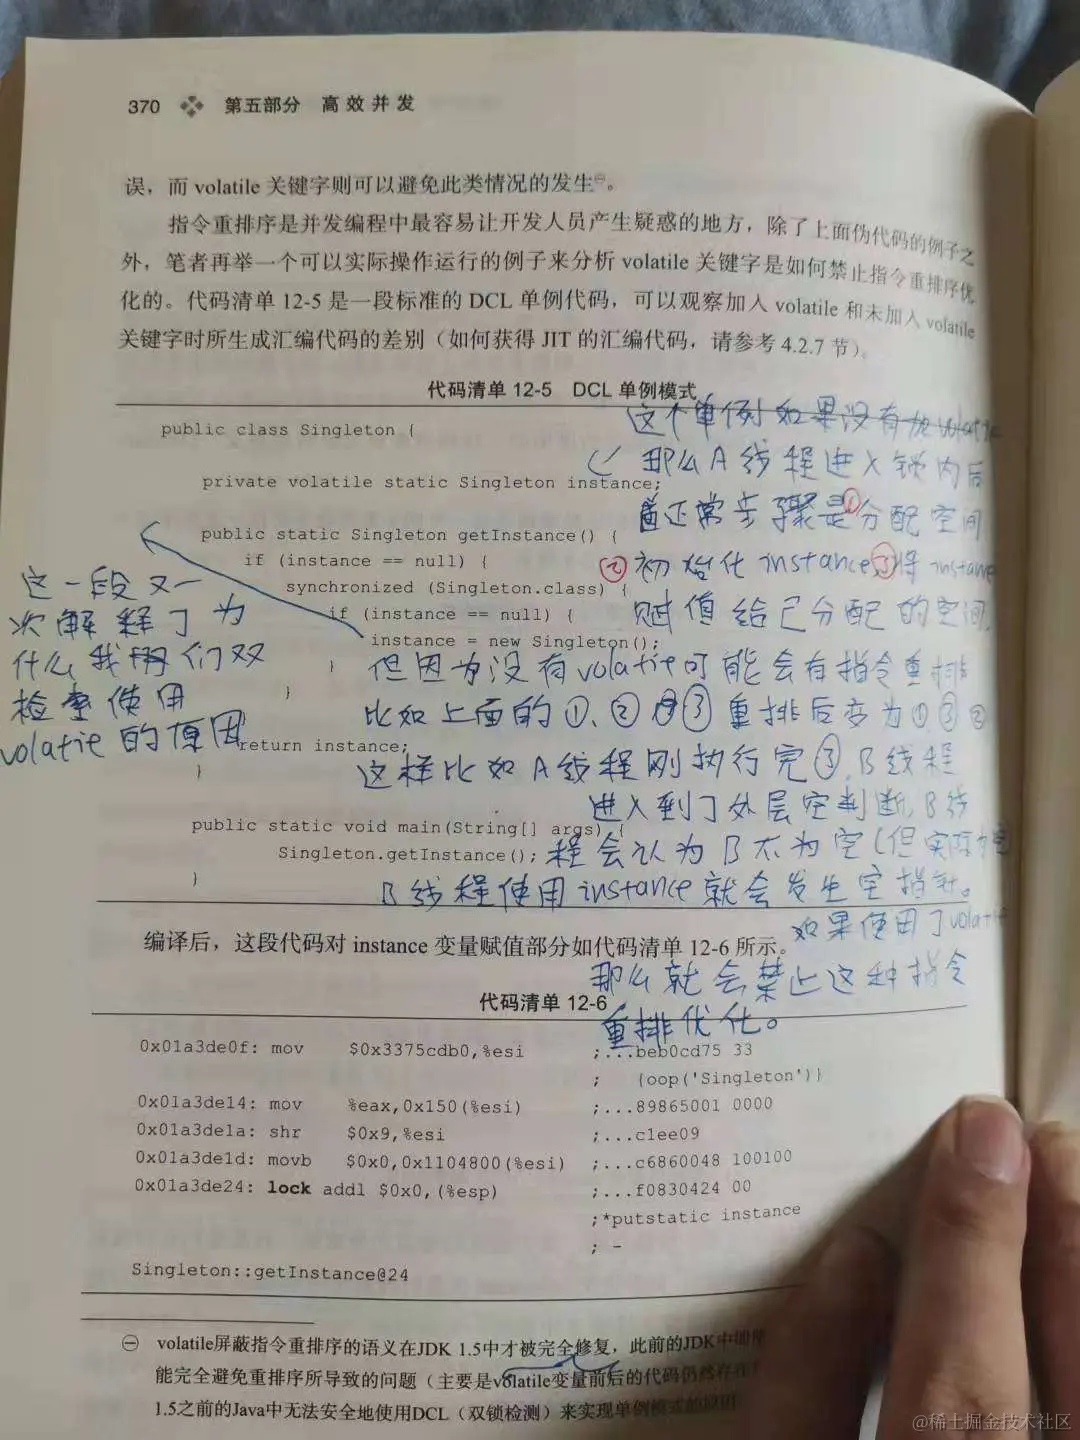 370 第五部分 高效并发
误，而 volatile 关键字则可以避免此类情况的发生㊀。
指令重排序是并发编程中最容易让开发人员产生疑惑的地方，除了上面伪代码的例子之
外，笔者再举一个可以实际操作运行的例子来分析 volatile 关键字是如何禁止指令重排序优
化的。代码清单 12-5 是一段标准的 DCL 单例代码，可以观察加入 volatile 和未加入 volatile
关键字时所生成汇编代码的差别（如何获得 JIT 的汇编代码，请参考 4.2.7 节）。
代码清单 12-5 DCL 单例模式
public class Singleton {
private volatile static Singleton instance;
public static Singleton getInstance() {
if (instance == null) {
synchronized (Singleton.class) {
if (instance == null) {
instance = new Singleton();
}
}
return instance;
}
public static void main(String[] args) {
Singleton.getInstance();
}
这个单例如果没有加
那么A线程进入锁内后
正常步骤是①分配空间
②初始化instance③将
赋值给已分配的空间
但因为没有volatie可能会有指令重排
比如上面的①、②③重排后变为①③②
这样比如A线程刚执行完③,B线程
进入到了外层空判断,B线
程会认为B不为空(但实际
B线程使用instance就会发生空指针。
如果使用了
那么就会禁止这种指令
重排优化。
这一段又一
次解释了为
什么我们双
检查使用
volatie的原因
编译后，这段代码对 instance 变量赋值部分如代码清单 12-6 所示。
代码清单 12-6
0x01a3de0f: mov $0x3375cdb0,%esi ;...beb0cd75 33
; {oop('Singleton')}
0x01a3de14: mov %eax,0x150(%esi) ;...89865001 0000
0x01a3de1a: shr $0x9,%esi ;...c1ee09
0x01a3de1d: movb $0x0,0x1104800(%esi) ;...c6860048 100100
0x01a3de24: lock addl $0x0,(%esp) ;...f0830424 00
;*putstatic instance
; -
Singleton::getInstance@24
㊀ volatile屏蔽指令重排序的语义在JDK 1.5中才被完全修复，此前的JDK中即
能完全避免重排序所导致的问题（主要是volatile变量前后的代码仍然存在
1.5之前的Java中无法安全地使用DCL（双锁检测）来实现单例模式的原因
@稀土掘金技术社区